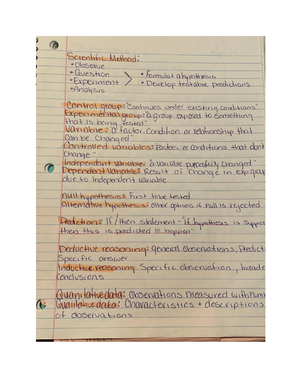 Scientific Method:
• Observe
• Question
• Experiment
• Analysis
• Formulat a hypothesis
• Develop testable predictions
Control group: "Continues under existing conditions"
Experimental group: "a group exposed to something
that is being tested"
Variable: "a factor, condition or relationship that
can be changed"
Controlled variables: "Factors or conditions that dont
change"
Independent variable: "a variable purposfully changed"
Dependent variable: Result of change in exp. group
due to independent variable
null hypothesis: First to be tested
alternative hypothesis: other options if null is rejected
Prediction: "If/then statement - "If hypothesis is
then this is predicted to happen"
Deductive reasoning: general observations,
Specific answer
Inductive reasoning: Specific observation,
conclusions
Quantitative data: Observations measured with
Qualitative data: Characteristics + descriptions
of observations